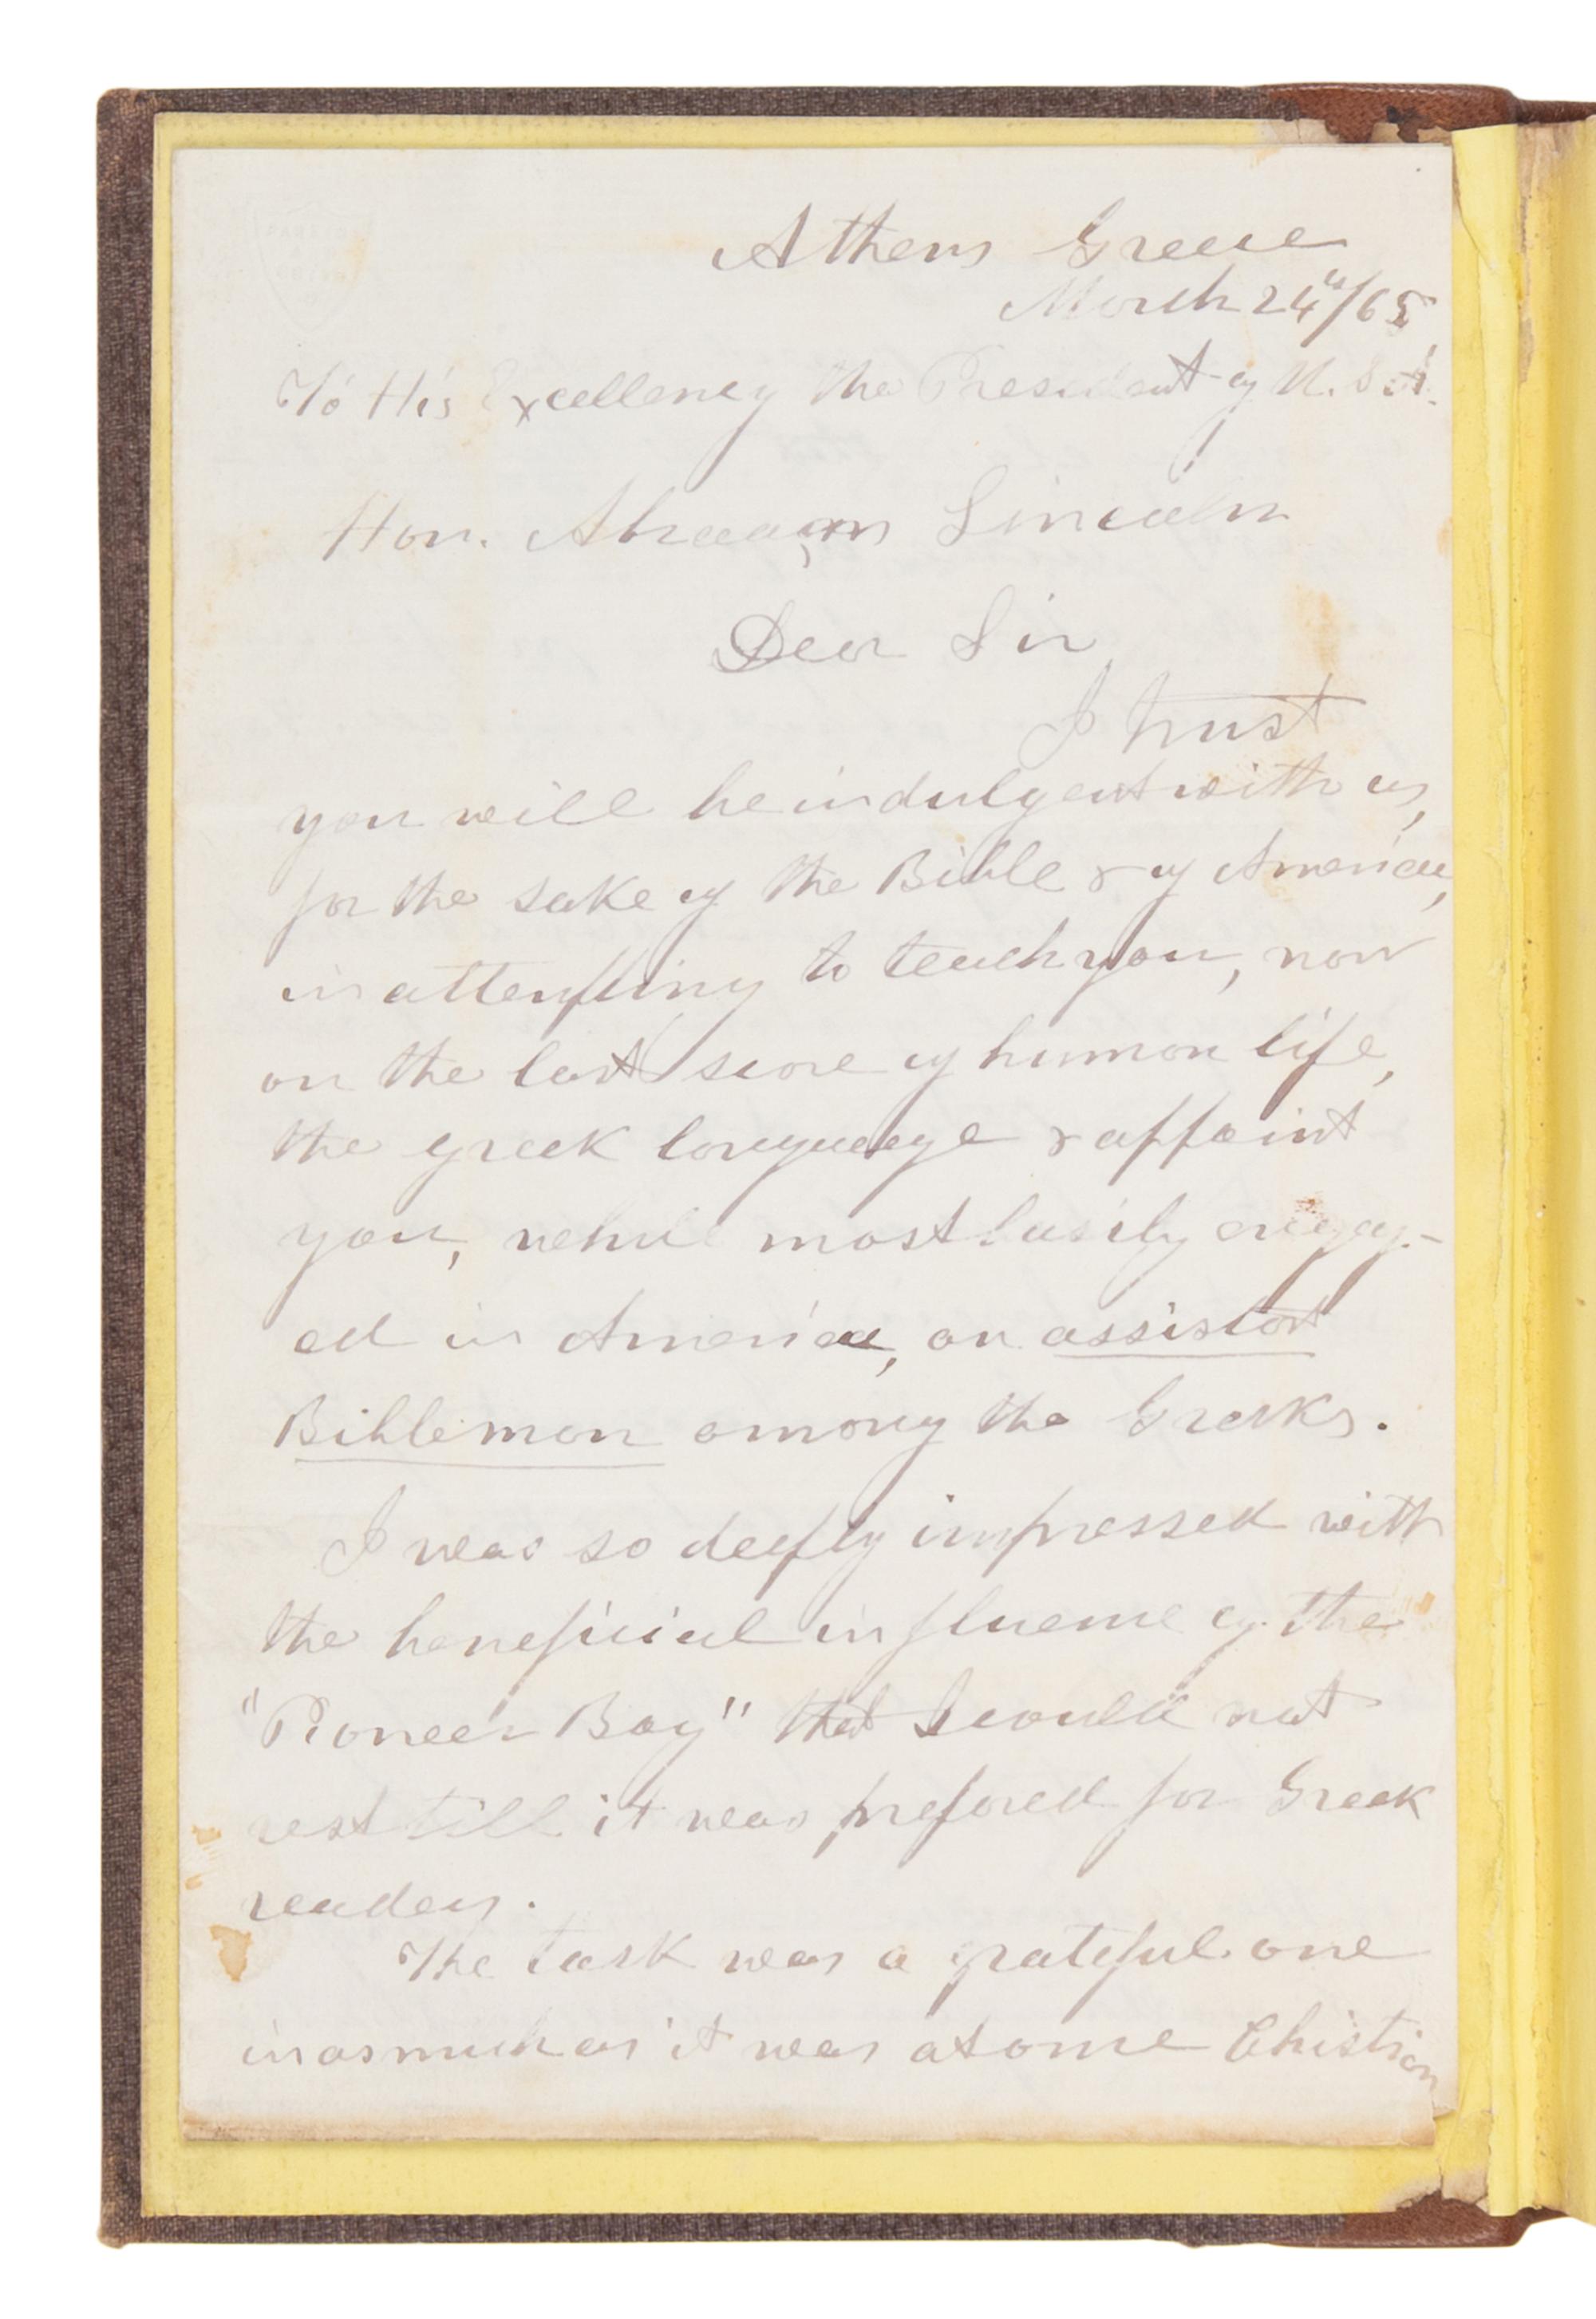 Athens Greece
March 24th/65
To His Excellency the President of U. S. A.
Hon. Abraam Lincoln
Dear Sir
I trust
you will be indulgent with us,
for the sake of the Bible & of America,
in attempting to teach you, now
on the last score of human life,
the greek language & appoint
you, while most busily engag-
ed in America, an assistant
Bibleman among the Greeks.
I was so deeply impressed with
the beneficial influence of the
"Pioneer Boy" that I could not
rest till it was prepared for Greek
readers.
The task was a grateful one
inasmuch as it was at once Christian